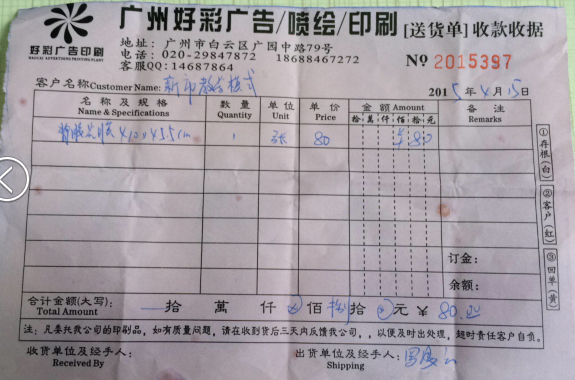 广州好彩广告/喷绘/印刷 [送货单] 收款收据
好彩广告印刷
MAGICAL ADVERTISING PRINTING PLANT
地址: 广州市白云区广园中路79号
电话: 020-29847872 18688467272
客服QQ:14687864
№ 2015397
客户名称Customer Name:
2015年4月15日
名称及规格 数量 单位 单价 金额 Amount 备注
Name & Specifications Quantity Unit Price 拾萬仟佰拾元 Remarks
1 张 80 80
①存根(白)
②客户(红)
③回单(黄)
订金:
余额:
合计金额(大写): 拾 萬 仟 佰 捌 拾 元 ¥ 80.
Total Amount
注: 凡委托我公司的印刷品, 如有质量问题, 请在收到货后三天内反馈我公司,, 以便及时出处理, 超时责任客户自负。
收货单位及经手人: 出货单位及经手人:
Received By Shipping